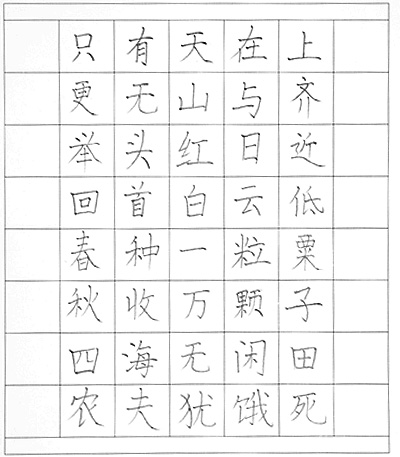 只有天在上
更无山与齐
举头红日近
回首白云低
春种一粒粟
秋收万颗子
四海无闲田
农夫犹饿死